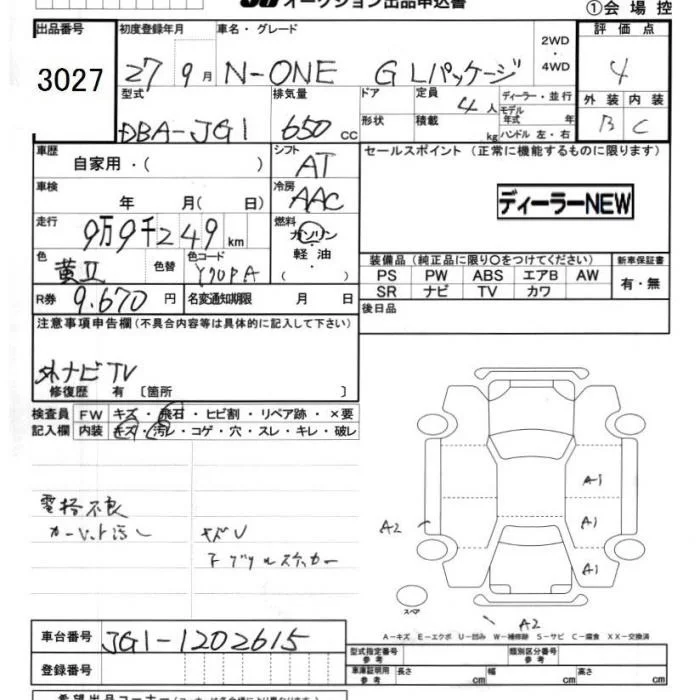 オークション出品申込書
①会場控
出品番号 初度登録年月 車名・グレード 2WD・4WD 評価点
3027 27 9月 N-ONE G Lパッケージ 4
型式 排気量 ドア 定員 ディーラー・並行 外装 内装
DBA-JG1 650cc 形状 4人 積載 kg モデル年式 年 ハンドル 左・右 B C
車歴 自家用・( ) シフト AT セールスポイント (正常に機能するものに限ります)
車検 年 月( 日) 冷房 AAC ディーラーNEW
走行 9万9千249km 燃料 ガソリン 軽油 ・( )
色 黄II 色替 色コード Y70PA
装備品(純正品に限り○をつけてください) 新車保証書
PS PW ABS エアB AW 有・無
SR ナビ TV カワ
R券 9,670円 名変通知期限 月 日 後日品
注意事項申告欄(不具合内容等は具体的に記入して下さい)
外ナビTV
修復歴 有 〔箇所 〕
検査員 FW キズ・飛石・ヒビ割・リペア跡・×要
記入欄 内装 キズ・汚レ・コゲ・穴・スレ・キレ・破レ
電格不良
カーペット汚レ キズU
A1
A1
A2
A1
スペア
A2
A-キズ E-エクボ U-凹み W-補修跡 S-サビ C-腐食 XX-交換済
車台番号 JG1-1202615 型式指定番号 参考 類別区分番号 参考
登録番号 車庫証明用 参考 長さ cm 幅 cm 高さ cm
希望出品コーナー